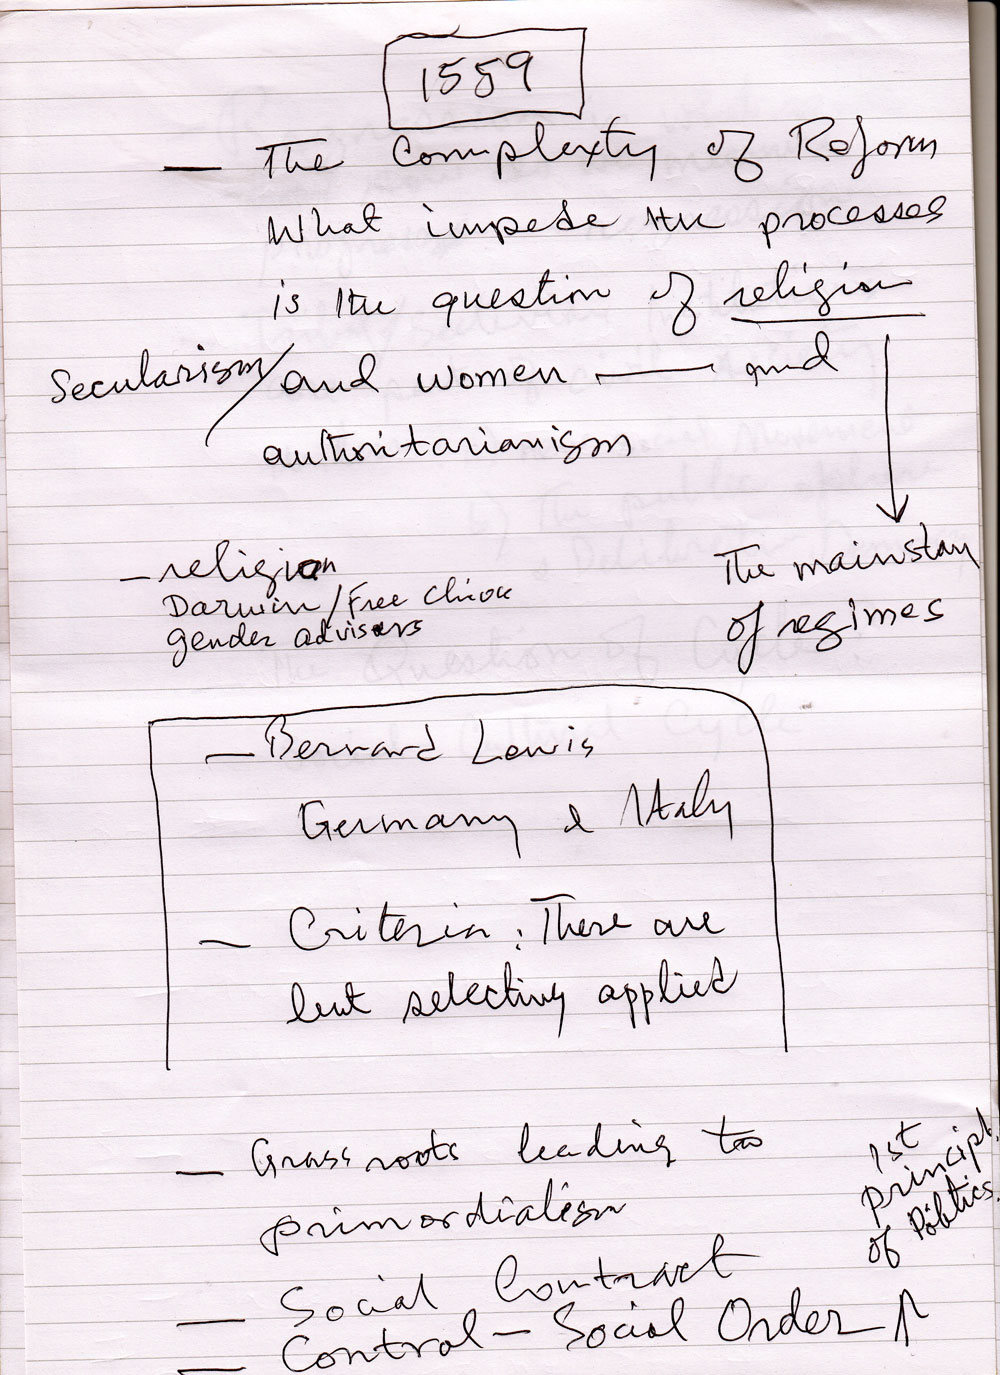 1559
— The Complexity of Reform
What impede the processes
is the question of religion
Secularism/ and women — and
authoritarianism
The mainstay
of regimes
— religion
Darwin / Free Choice
gender advisors
— Bernard Lewis
Germany & Italy
— Criteria : There are
but selecting applied
— Grass roots leading to
primordialism
1st
principl
of Politics
— Social Contract
— Control — Social Order